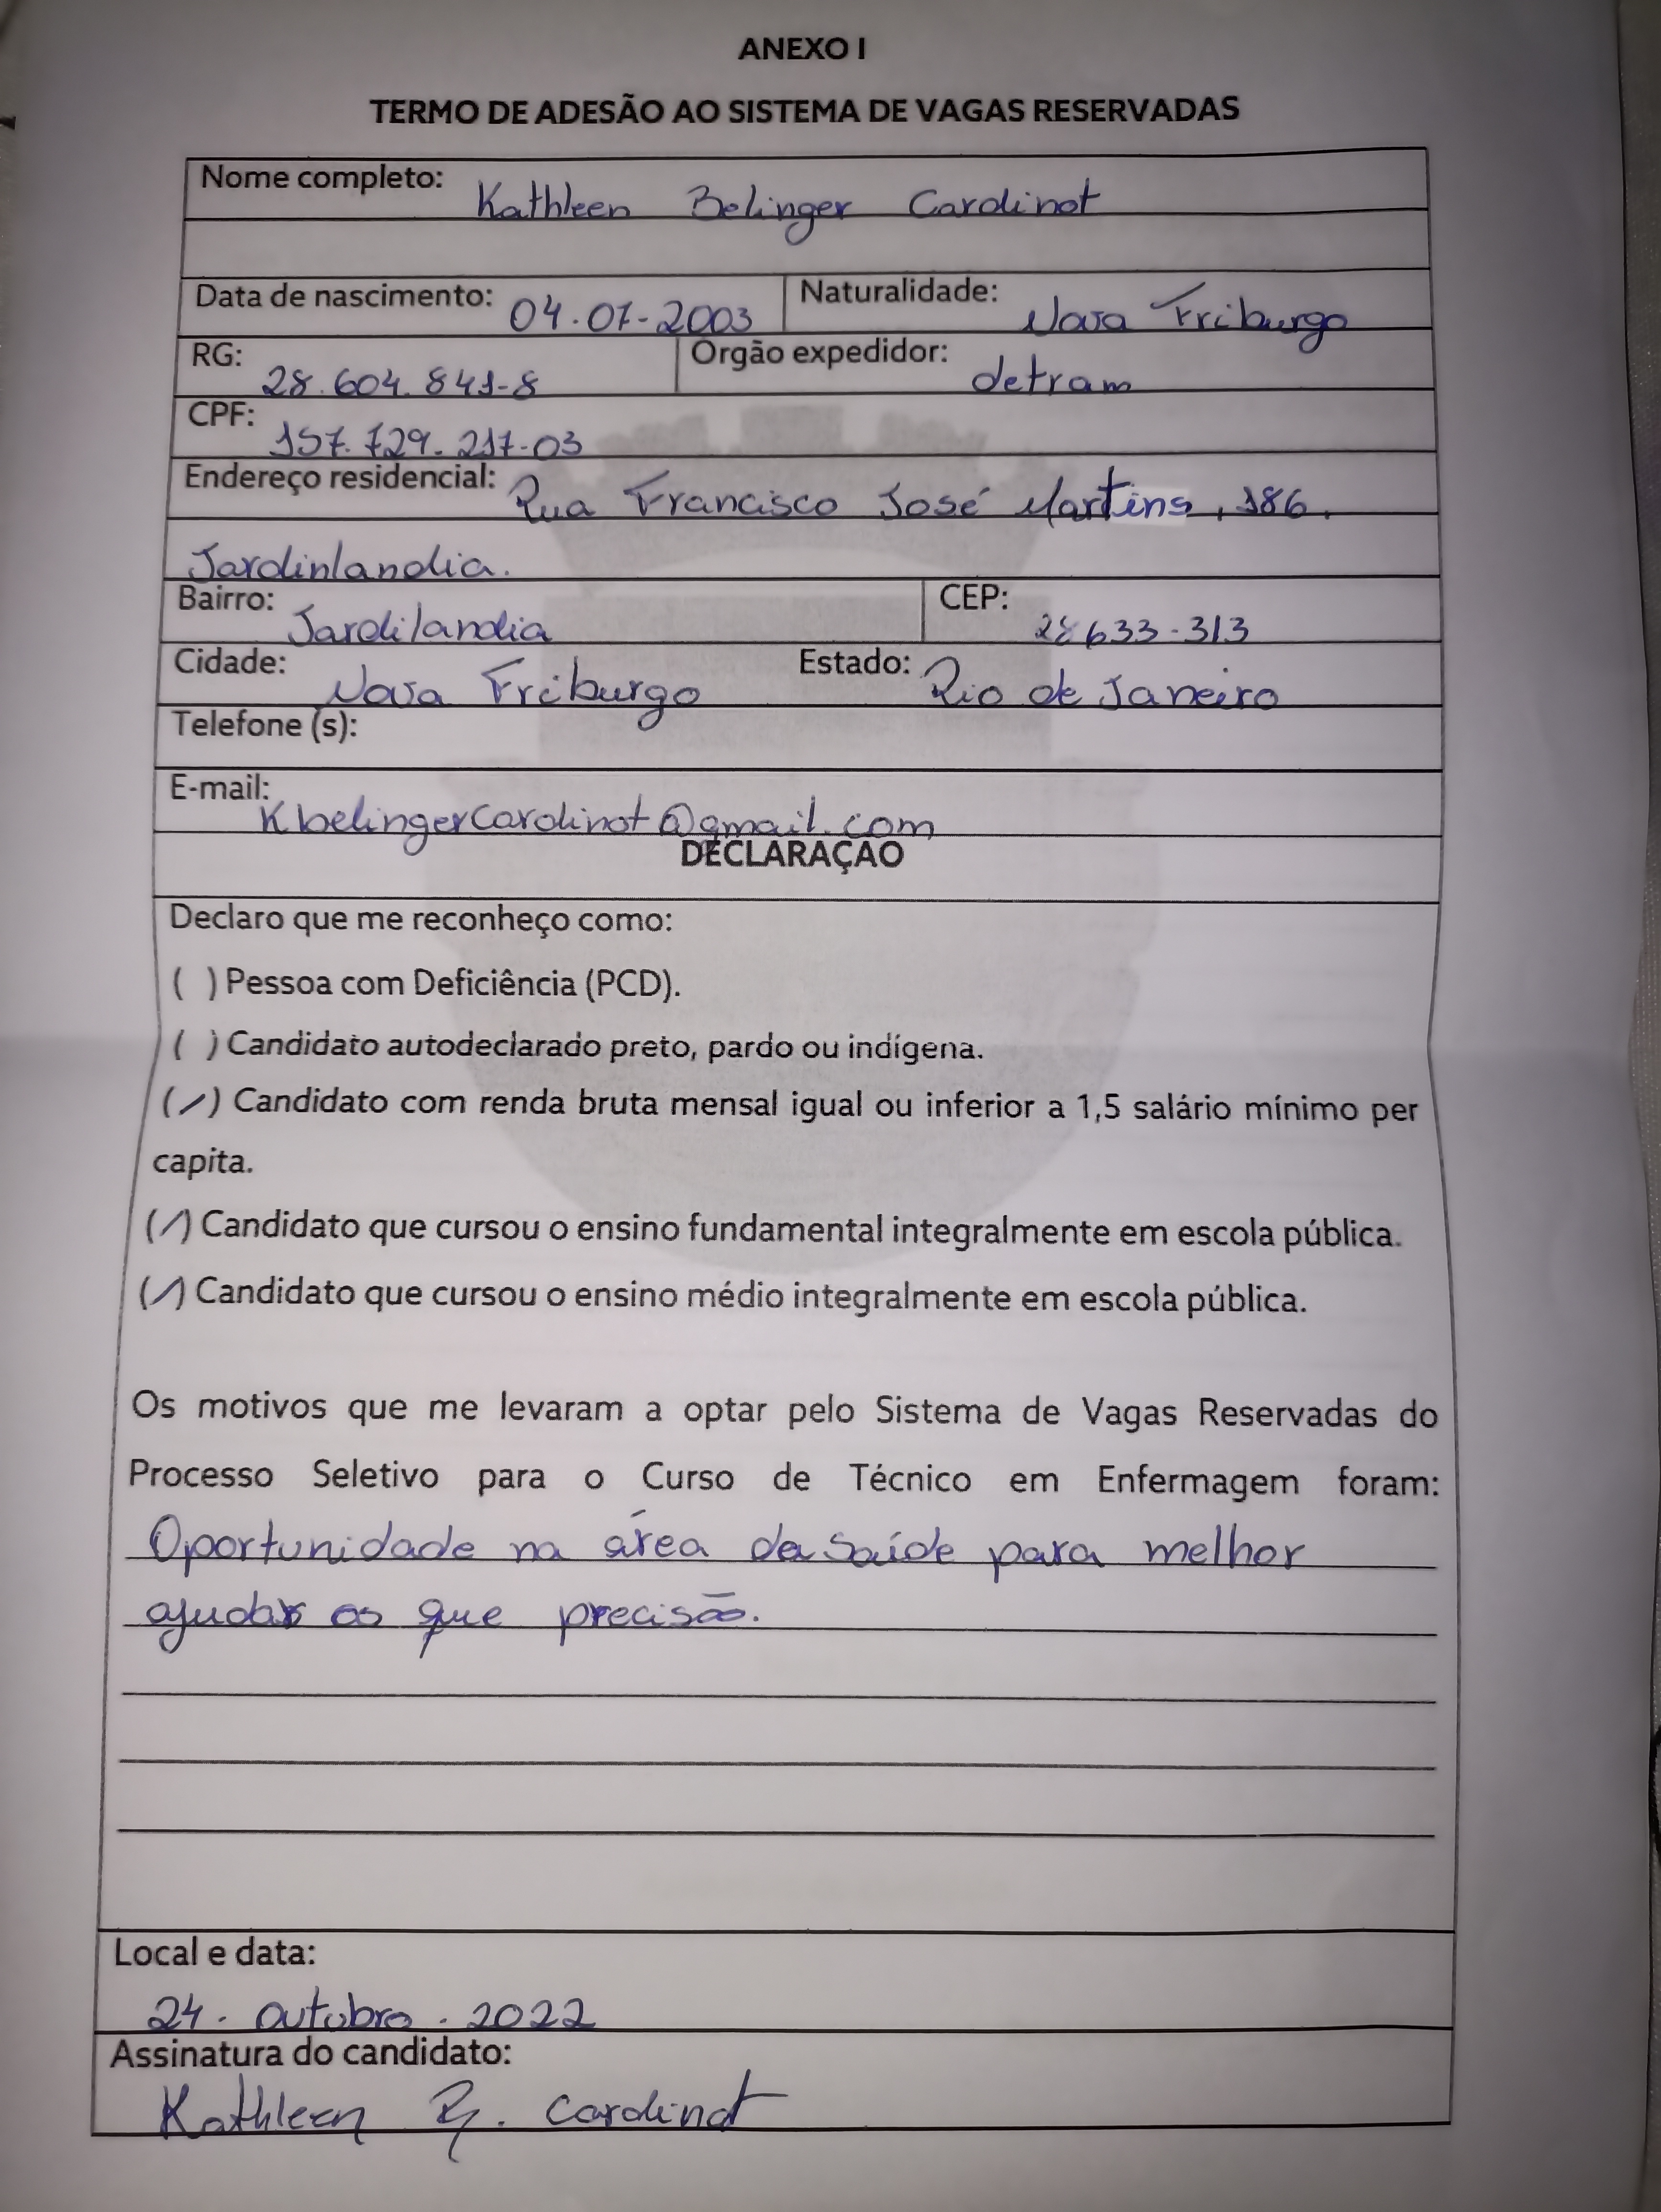 ANEXO I
TERMO DE ADESÃO AO SISTEMA DE VAGAS RESERVADAS
Nome completo: Kathleen Belinger Cardinot
Data de nascimento: 04.07-2003 Naturalidade: Nova Friburgo
RG: 28.604.841-8 Órgão expedidor: detram
CPF: 157.729.217-03
Endereço residencial: Rua Francisco José Martins, 186.
Jardinlandia.
Bairro: Jardilandia CEP: 28633-313
Cidade: Nova Friburgo Estado: Rio de Janeiro
Telefone (s):
E-mail: Kbelingercardinot@gmail.com
DECLARAÇÃO
Declaro que me reconheço como:
( ) Pessoa com Deficiência (PCD).
( ) Candidato autodeclarado preto, pardo ou indígena.
(/) Candidato com renda bruta mensal igual ou inferior a 1,5 salário mínimo per
capita.
(/) Candidato que cursou o ensino fundamental integralmente em escola pública.
(/) Candidato que cursou o ensino médio integralmente em escola pública.
Os motivos que me levaram a optar pelo Sistema de Vagas Reservadas do
Processo Seletivo para o Curso de Técnico em Enfermagem foram:
Oportunidade na área da Saíde para melhor
ajudar os que precisão.
Local e data:
24. outubro. 2022
Assinatura do candidato:
Kathleen B. Cardinot